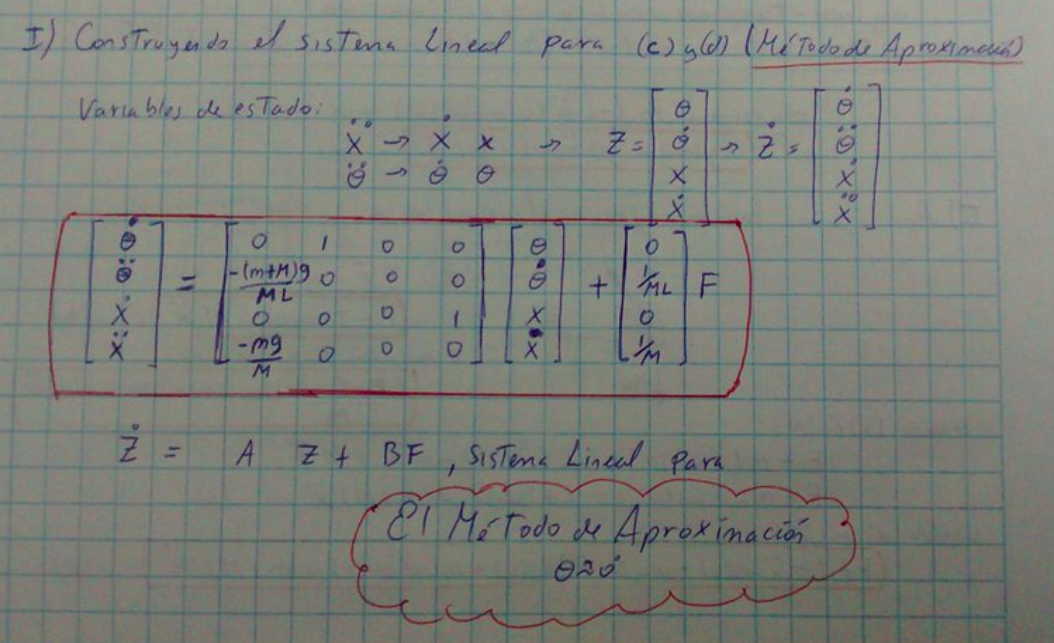 I) Construyendo el sistema lineal para (c) y (d) (Método de Aproximación)
Variables de estado:
ẍ → ẋ x → Z = [θ θ̇ x ẋ] → Ż = [θ̇ θ̈ ẋ ẍ]
θ̈ → θ̇ θ
[θ̇ θ̈ ẋ ẍ] = [0 1 0 0; -(m+M)g/ML 0 0 0; 0 0 0 1; -mg/M 0 0 0] [θ θ̇ x ẋ] + [0 1/ML 0 1/M] F
Ż = A Z + BF, sistema Lineal para
El Método de Aproximación
θ≈0